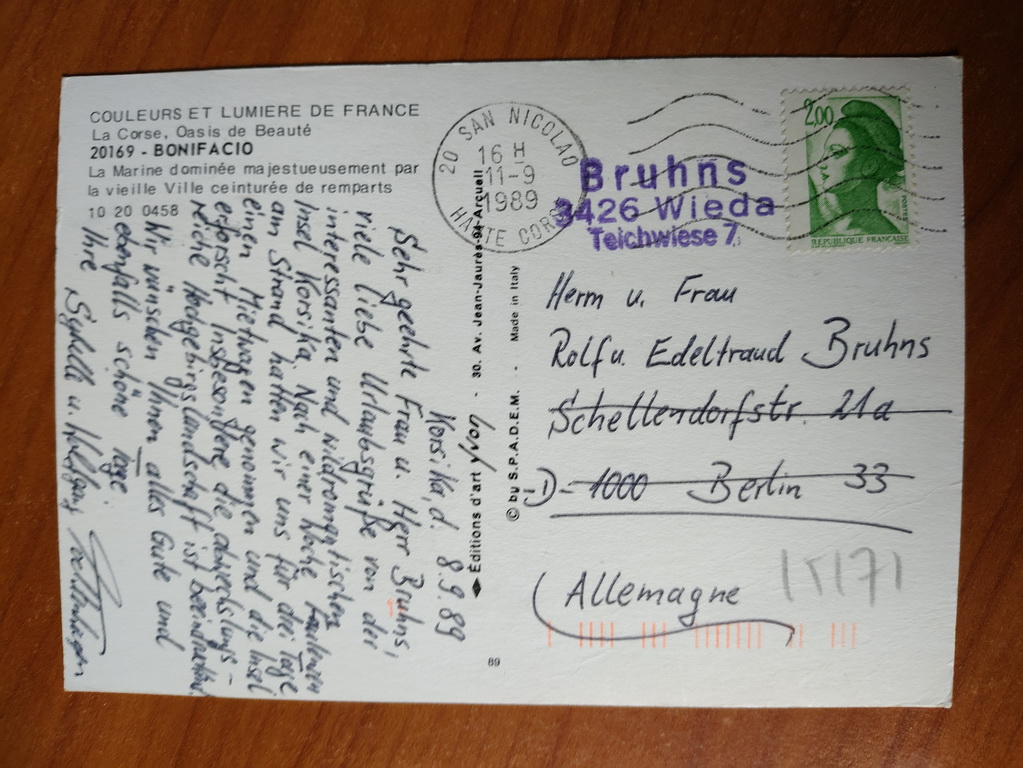 COULEURS ET LUMIERE DE FRANCE
La Corse, Oasis de Beauté
20169 - BONIFACIO
La Marine dominée majestueusement par
la vieille Ville ceinturée de remparts
10 20 0458
Korsika, d. 8.9.89
Sehr geehrte Frau u. Herr Bruhns,
viele liebe Urlaubsgrüße von der
interessanten und wildromantischen
Insel Korsika. Nach einer Woche Faulenzen
am Strand hatten wir uns für drei Tage
einen Mietwagen genommen und die Insel
erforscht. Insbesondere die abwechslungs-
reiche Hochgebirgslandschaft ist
Wir wünschen Ihnen alles Gute und
ebenfalls schöne Tage
Ihre Sybille u. Wolfgang
Éditions d'art Yvon - 30, Av. Jean-Jaurès-94-Arcueil
© by S.P.A.D.E.M. - Made in Italy
89
20 SAN NICOLAO
16 H
11-9
1989
HAUTE CORSE
2,00
POSTES
REPUBLIQUE FRANCAISE
Bruhns
3426 Wieda
Teichwiese 7
Herrn u. Frau
Rolf u. Edeltraud Bruhns
Schellendorfstr. 21a
-D-1000 Berlin 33
Allemagne
15171